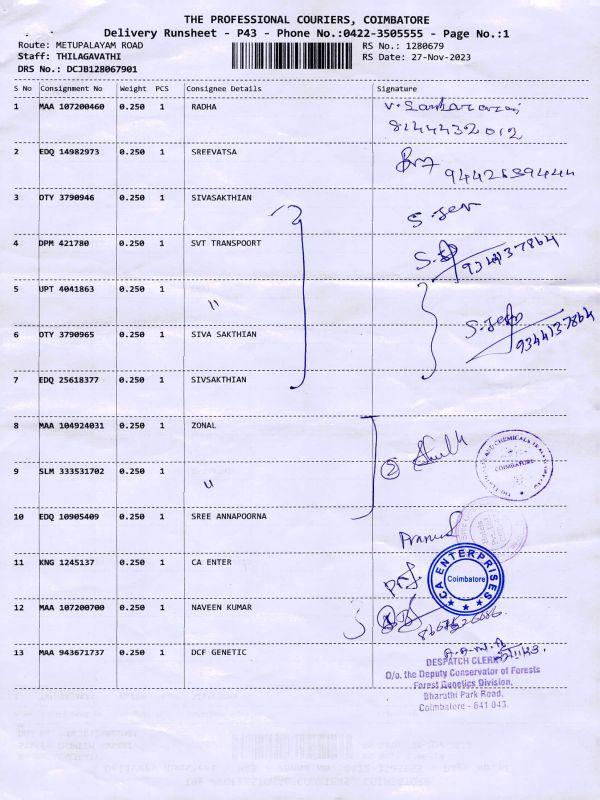 THE PROFESSIONAL COURIERS, COIMBATORE
Delivery Runsheet - P43 - Phone No.:0422-3505555 - Page No.:1
Route: METUPALAYAM ROAD RS No.: 1280679
Staff: THILAGAVATHI RS Date: 27-Nov-2023
DRS No.: DCJB128067901
S No Consignment No Weight PCS Consignee Details Signature
1 MAA 107200460 0.250 1 RADHA
8144432012
2 EDQ 14982973 0.250 1 SREEVATSA
9442639444
3 DTY 3790946 0.250 1 SIVASAKTHIAN
4 DPM 421780 0.250 1 SVT TRANSPOORT
9344137864
5 UPT 4041863 0.250 1 "
9344137864
6 DTY 3790965 0.250 1 SIVA SAKTHIAN
7 EDQ 25618377 0.250 1 SIVSAKTHIAN
8 MAA 104924031 0.250 1 ZONAL
COIMBATORE
9 SLM 333531702 0.250 1 "
10 EDQ 10905409 0.250 1 SREE ANNAPOORNA
11 KNG 1245137 0.250 1 CA ENTER
CA ENTERPRISES
Coimbatore
12 MAA 107200700 0.250 1 NAVEEN KUMAR
13 MAA 943671737 0.250 1 DCF GENETIC
DESPATCH CLERK
D/o. the Deputy Conservator of Forests
Forest Genetics Division,
Bharathi Park Road,
Coimbatore - 641 043.